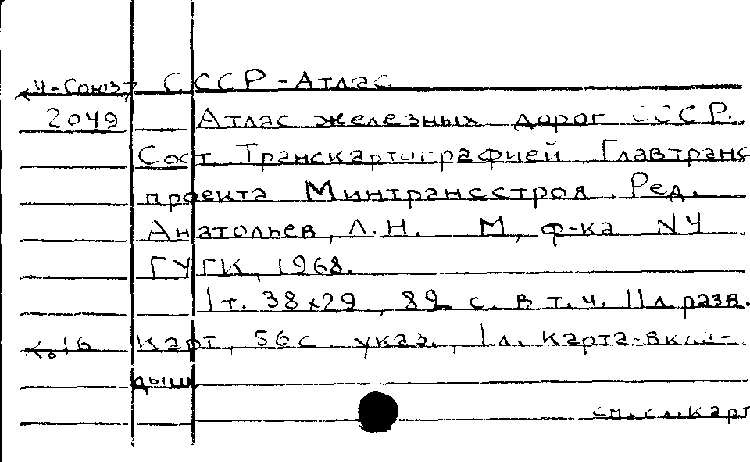 Ч-Союз СССР-Атлас
2049 Атлас железных дорог СССР.
Сост. Транскартографией Главтранс
проекта Минтрансстроя. Ред.
Анатольев, Л.Н. М, ф-ка N4
ГУГК, 1968.
1т. 38x29, 89 с. в т.ч. 11л разв.
карт, 56с указ., 1л. карта-вкла-
дыш
см.сл.карт